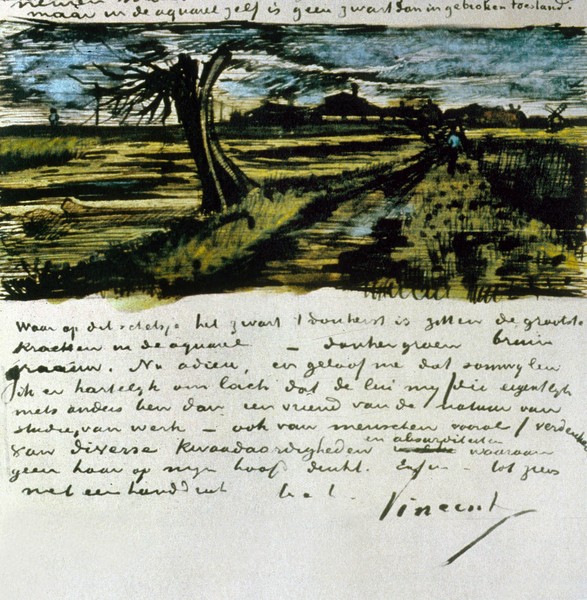 maar in de aquarel zelf is geen zwart dan in gebroken toestand.
Waar op dit schetsje het zwart t donkerst is zitten de grootste
krachten in de aquarel — donkergroen bruin
graauw. Nu adieu, en geloof me dat somwylen
ik er hartelyk om lach dat de lui my (die eigentlyk
niets anders ben dan een vriend van de natuur van
studie, van werk — ook van menschen vooral) verdenken
van diverse kwaadaardigheden en absurditeiten waaraan
geen haar op myn hoofd denkt. Enfin — tot ziens
met een handdruk t. à t.
Vincent